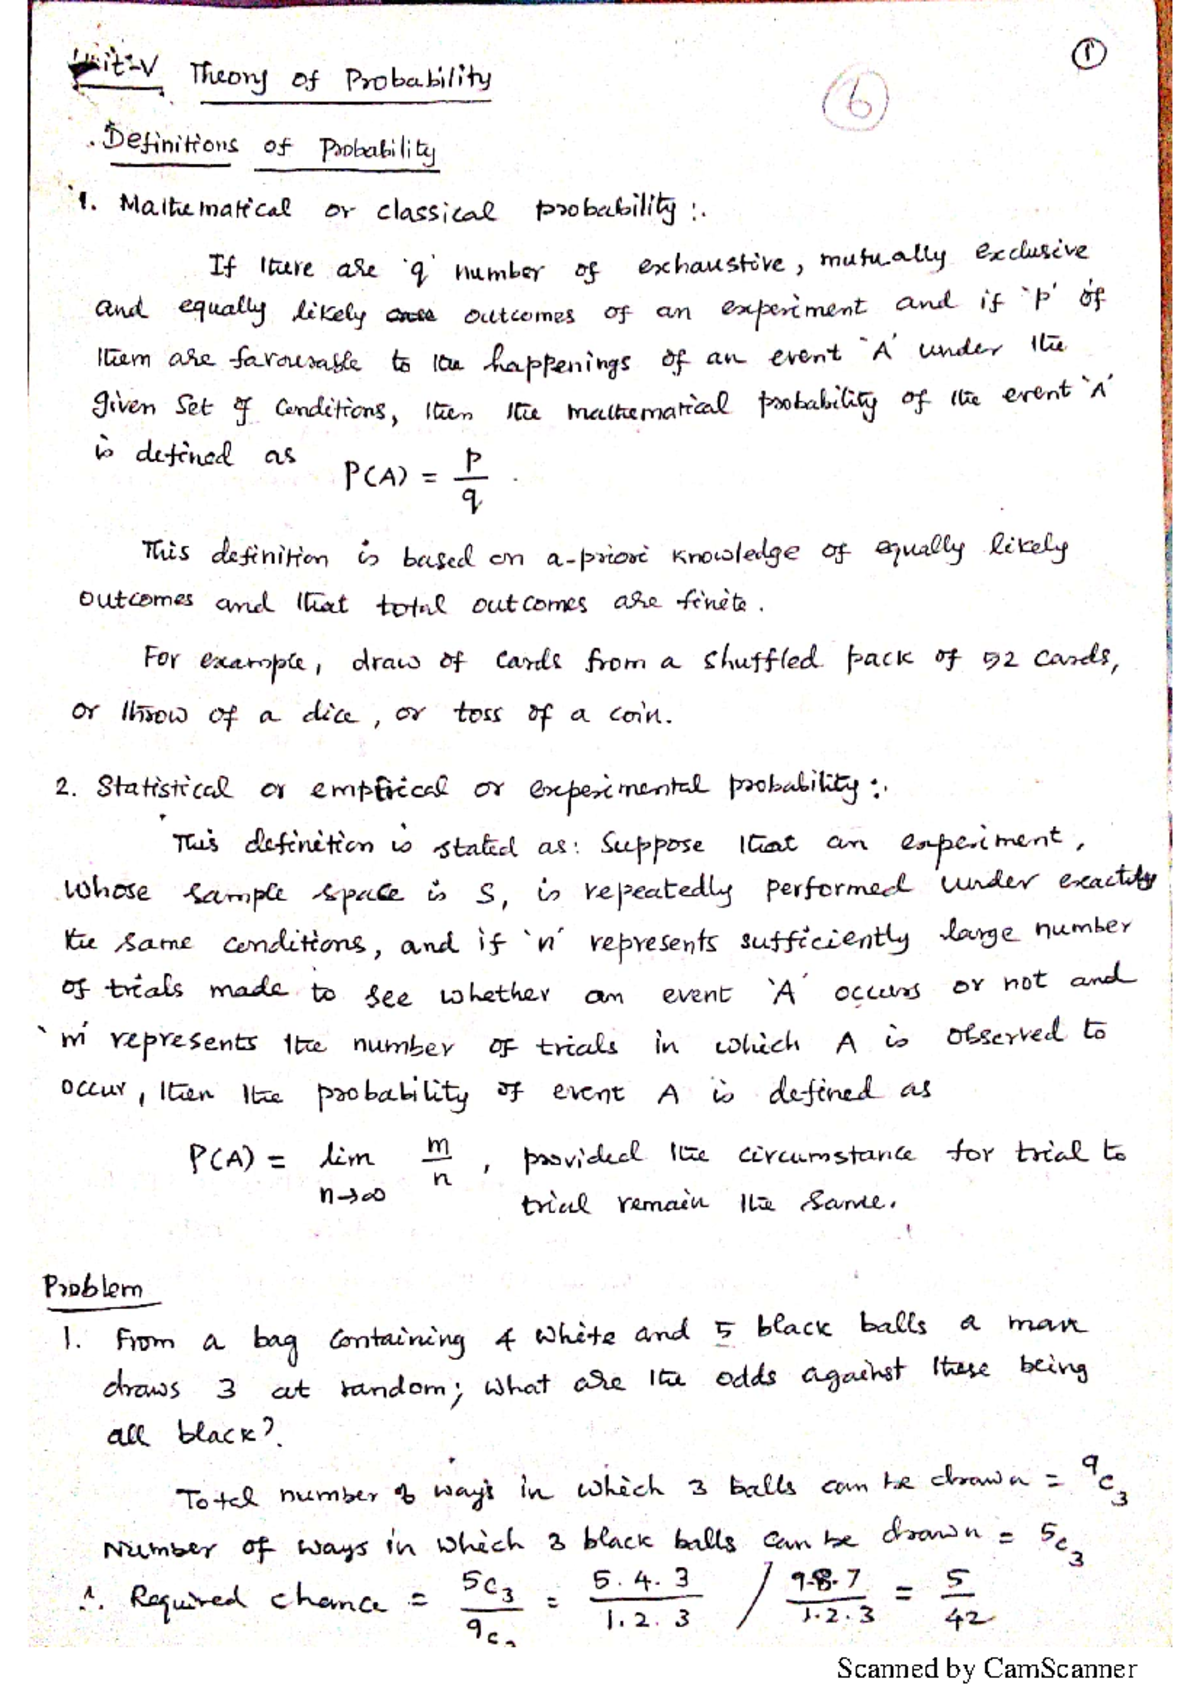 Unit-V Theory of Probability
1
6
Definitions of Probability
1. Mathematical or classical probability:.
If there are 'q' number of exhaustive, mutually exclusive
and equally likely outcomes of an experiment and if 'p' of
them are favourable to the happenings of an event 'A' under the
given set of conditions, then the mathematical probability of the event 'A'
is defined as P(A) = p/q.
This definition is based on a-priori knowledge of equally likely
outcomes and that total outcomes are finite.
For example, draw of cards from a shuffled pack of 52 cards,
or throw of a dice, or toss of a coin.
2. Statistical or empirical or experimental probability:.
This definition is stated as: Suppose that an experiment,
whose sample space is S, is repeatedly performed under exactly
the same conditions, and if 'n' represents sufficiently large number
of trials made to see whether an event 'A' occurs or not and
'm' represents the number of trials in which A is observed to
occur, then the probability of event A is defined as
P(A) = lim n→∞ m/n, provided the circumstance for trial to
trial remain the same.
Problem
1. From a bag containing 4 white and 5 black balls a man
draws 3 at random; what are the odds against these being
all black?.
Total number of ways in which 3 balls can be drawn = 9C3
Number of ways in which 3 black balls can be drawn = 5C3
∴ Required chance = 5C3/9C3 = 5.4.3/1.2.3 / 9.8.7/1.2.3 = 5/42
Scanned by CamScanner